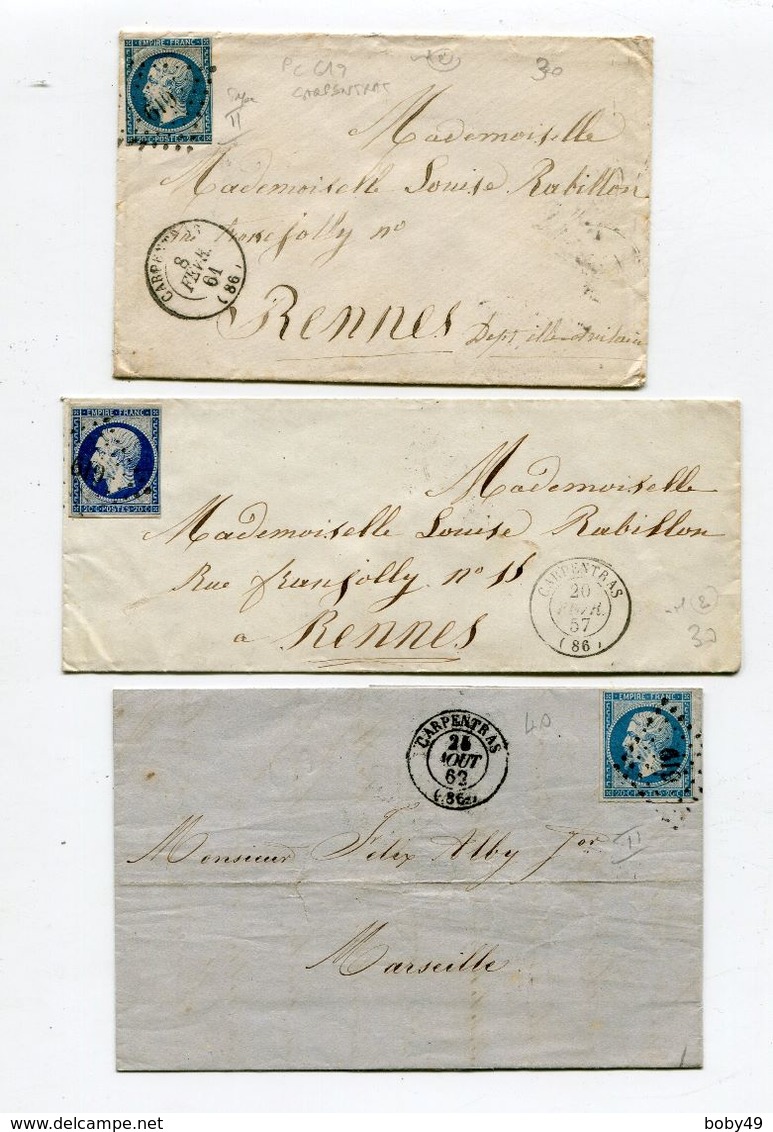 EMPIRE · FRANC
20 · C · POSTES · 20 · C
619
PC 619
CARPENTRAS
30
II
Mademoiselle
Mademoiselle Louise Rabillon
nº
CARPENTRAS
8
FEVR.
61
(86)
RENNES
EMPIRE · FRANC
20 · C · POSTES · 20 · C
619
Mademoiselle
Mademoiselle Louise Rabillon
Rue franjolly nº 11
a RENNES
CARPENTRAS
20
FEVR.
57
(86)
30
EMPIRE · FRANC
20 · C · POSTES · 20 · C
619
40
II
CARPENTRAS
25
AOUT
62
(86)
Monsieur Félix Alby Jor
Marseille
delcampe.net
boby49